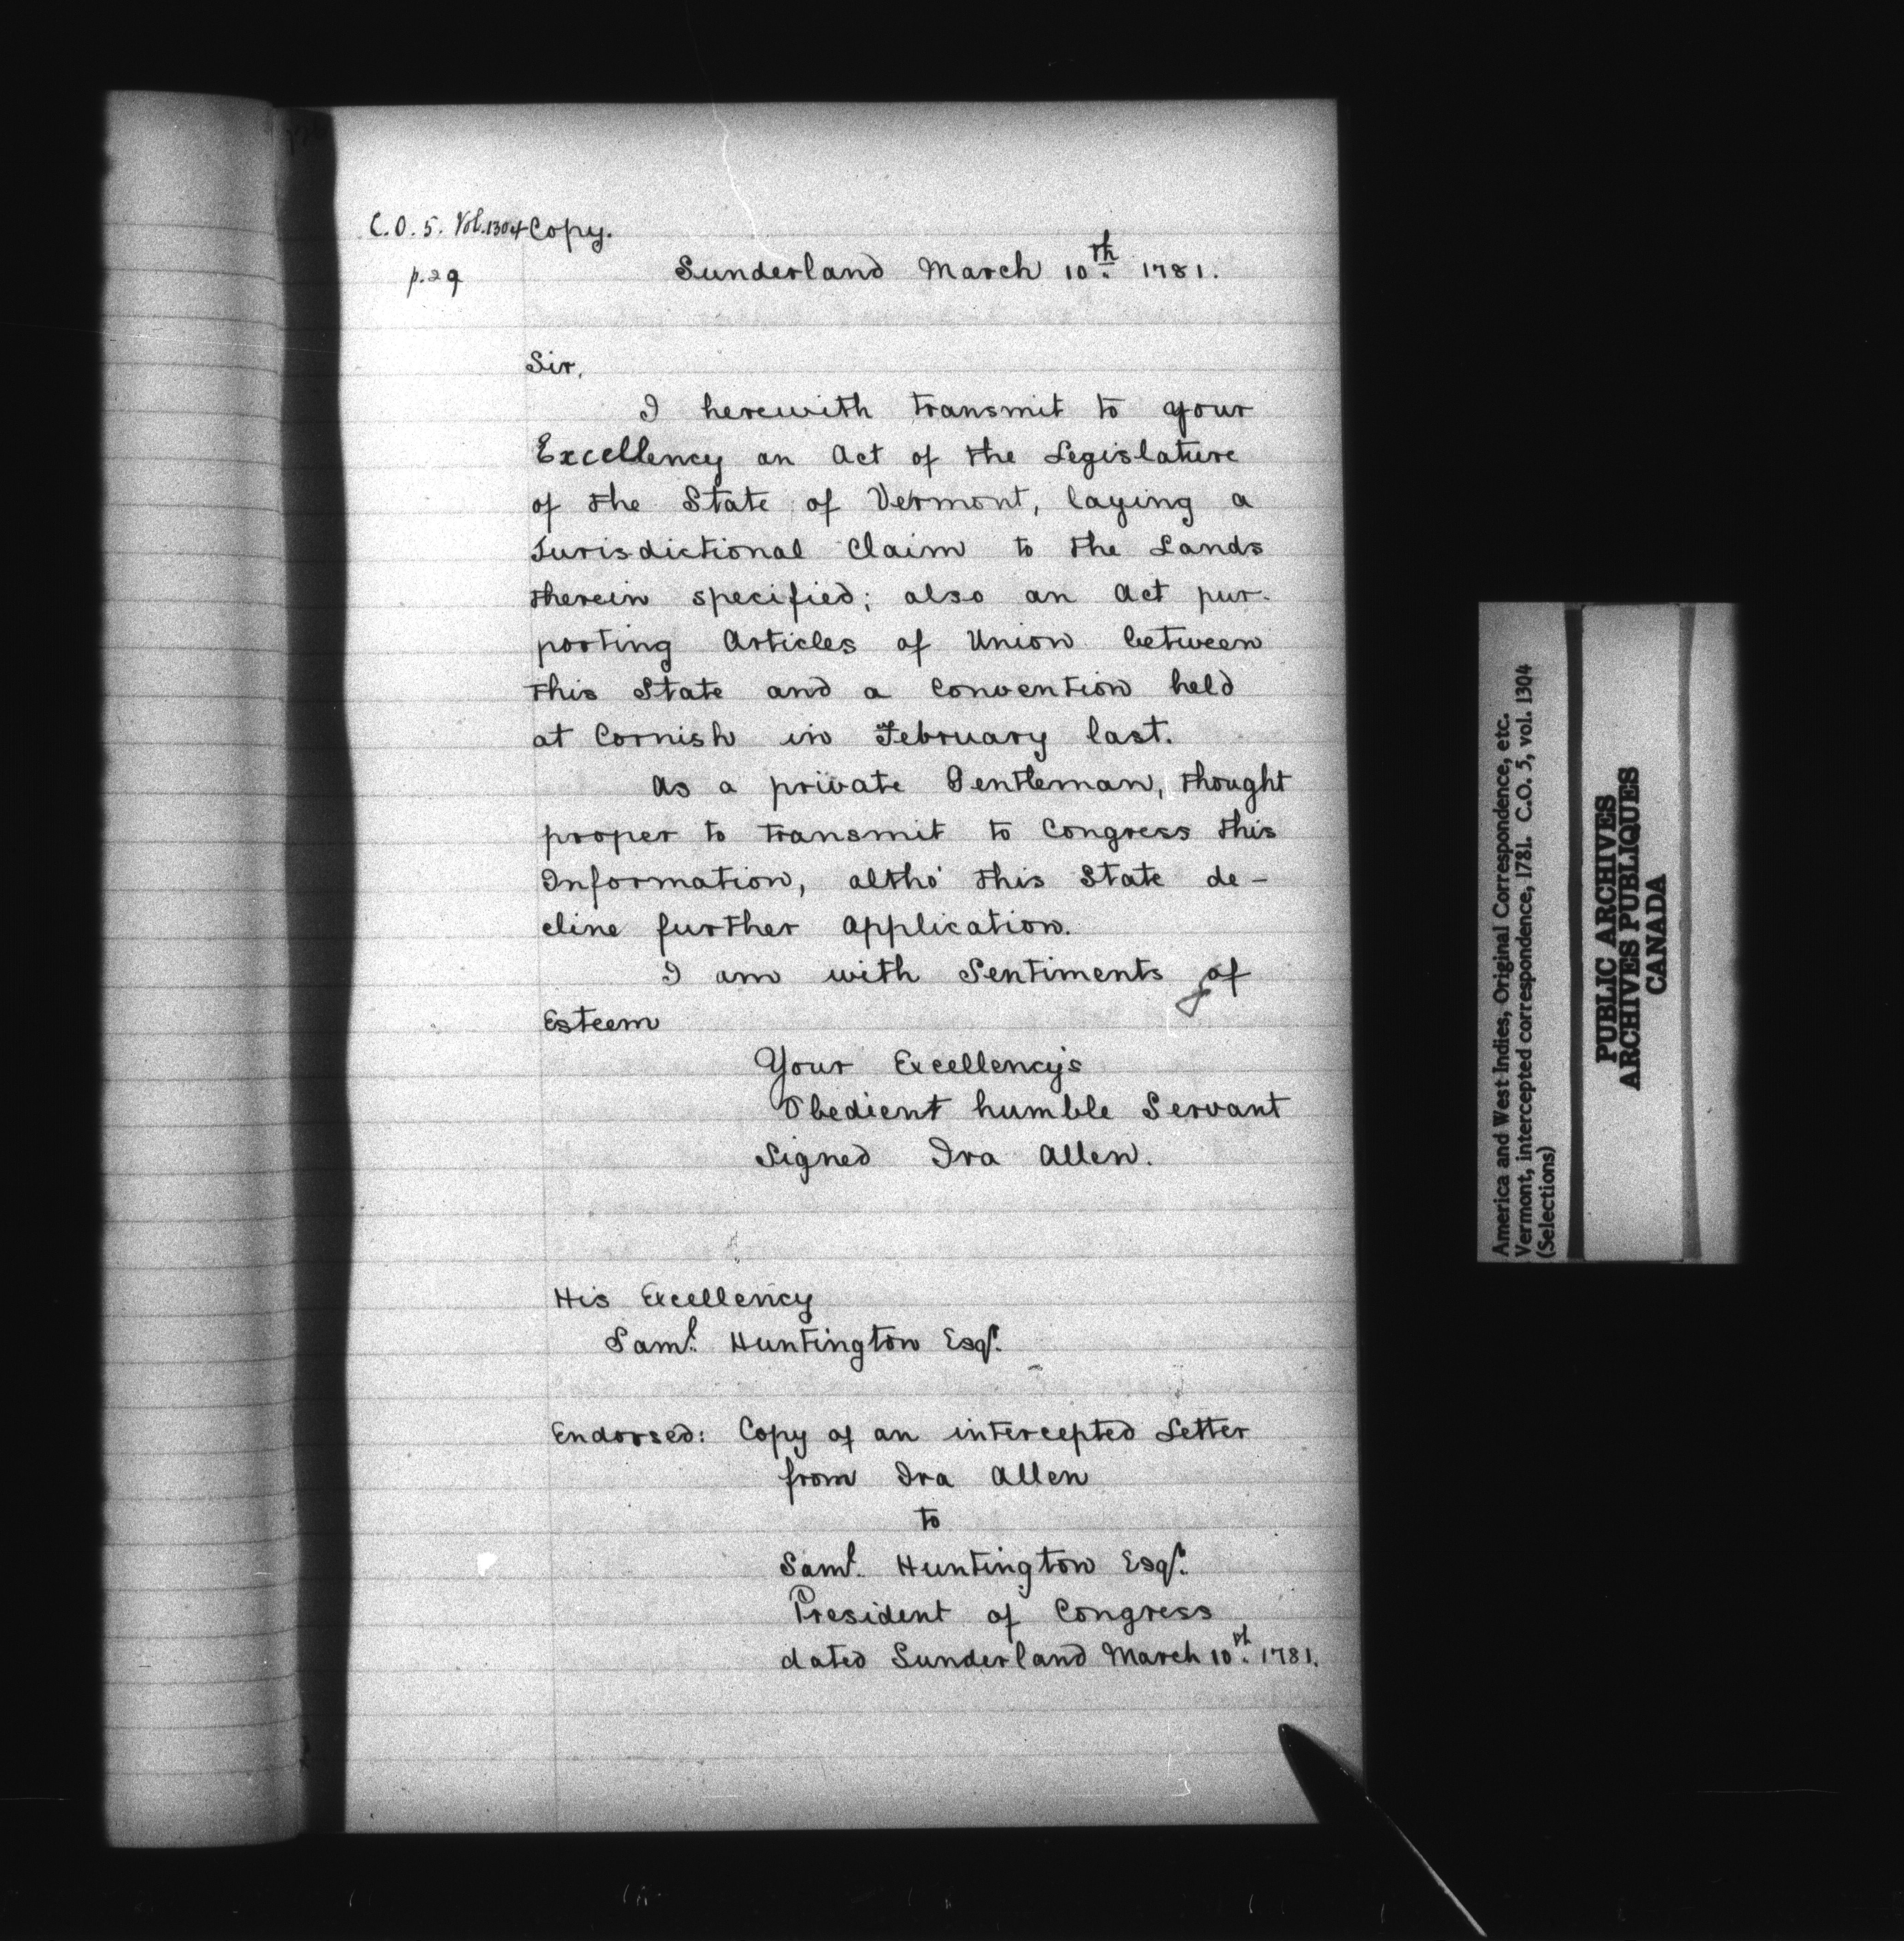 C.O. 5. Vol. 1304 Copy.
p. 29
Sunderland March 10th. 1781.
Sir,
I herewith transmit to your
Excellency an Act of the Legislature
of the State of Vermont, laying a
Jurisdictional Claim to the Lands
therein specified; also an Act pur-
porting Articles of Union between
this State and a Convention held
at Cornish in February last.
As a private Gentleman, thought
proper to transmit to Congress this
Information, altho' this State de-
cline further Application.
I am with Sentiments of
Esteem
Your Excellency's
Obedient humble Servant
Signed Ira Allen.
His Excellency
Saml. Huntington Esqr.
Endorsed: Copy of an intercepted Letter
from Ira Allen
to
Saml. Huntington Esqr.
President of Congress
dated Sunderland March 10th. 1781.
America and West Indies, Original Correspondence, etc.
Vermont, intercepted correspondence, 1781. C.O. 5, vol. 1304
(Selections)
PUBLIC ARCHIVES
ARCHIVES PUBLIQUES
CANADA